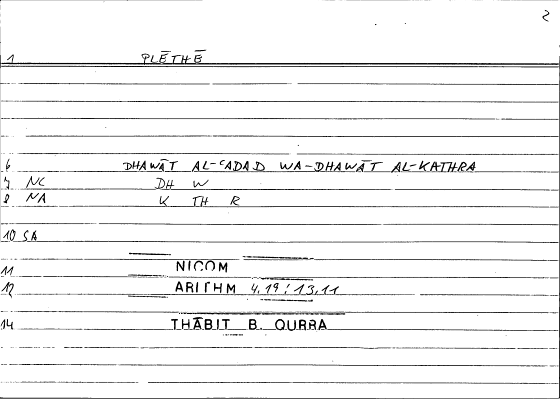 2
1 PLĒTHĒ
6 DHAWĀT AL-ʿADAD WA-DHAWĀT AL-KATHRA
7 NC DH W
8 NA K TH R
10 SA
11 NICOM
12 ARITHM 4,19 : 13,11
14 THĀBIT B. QURRA